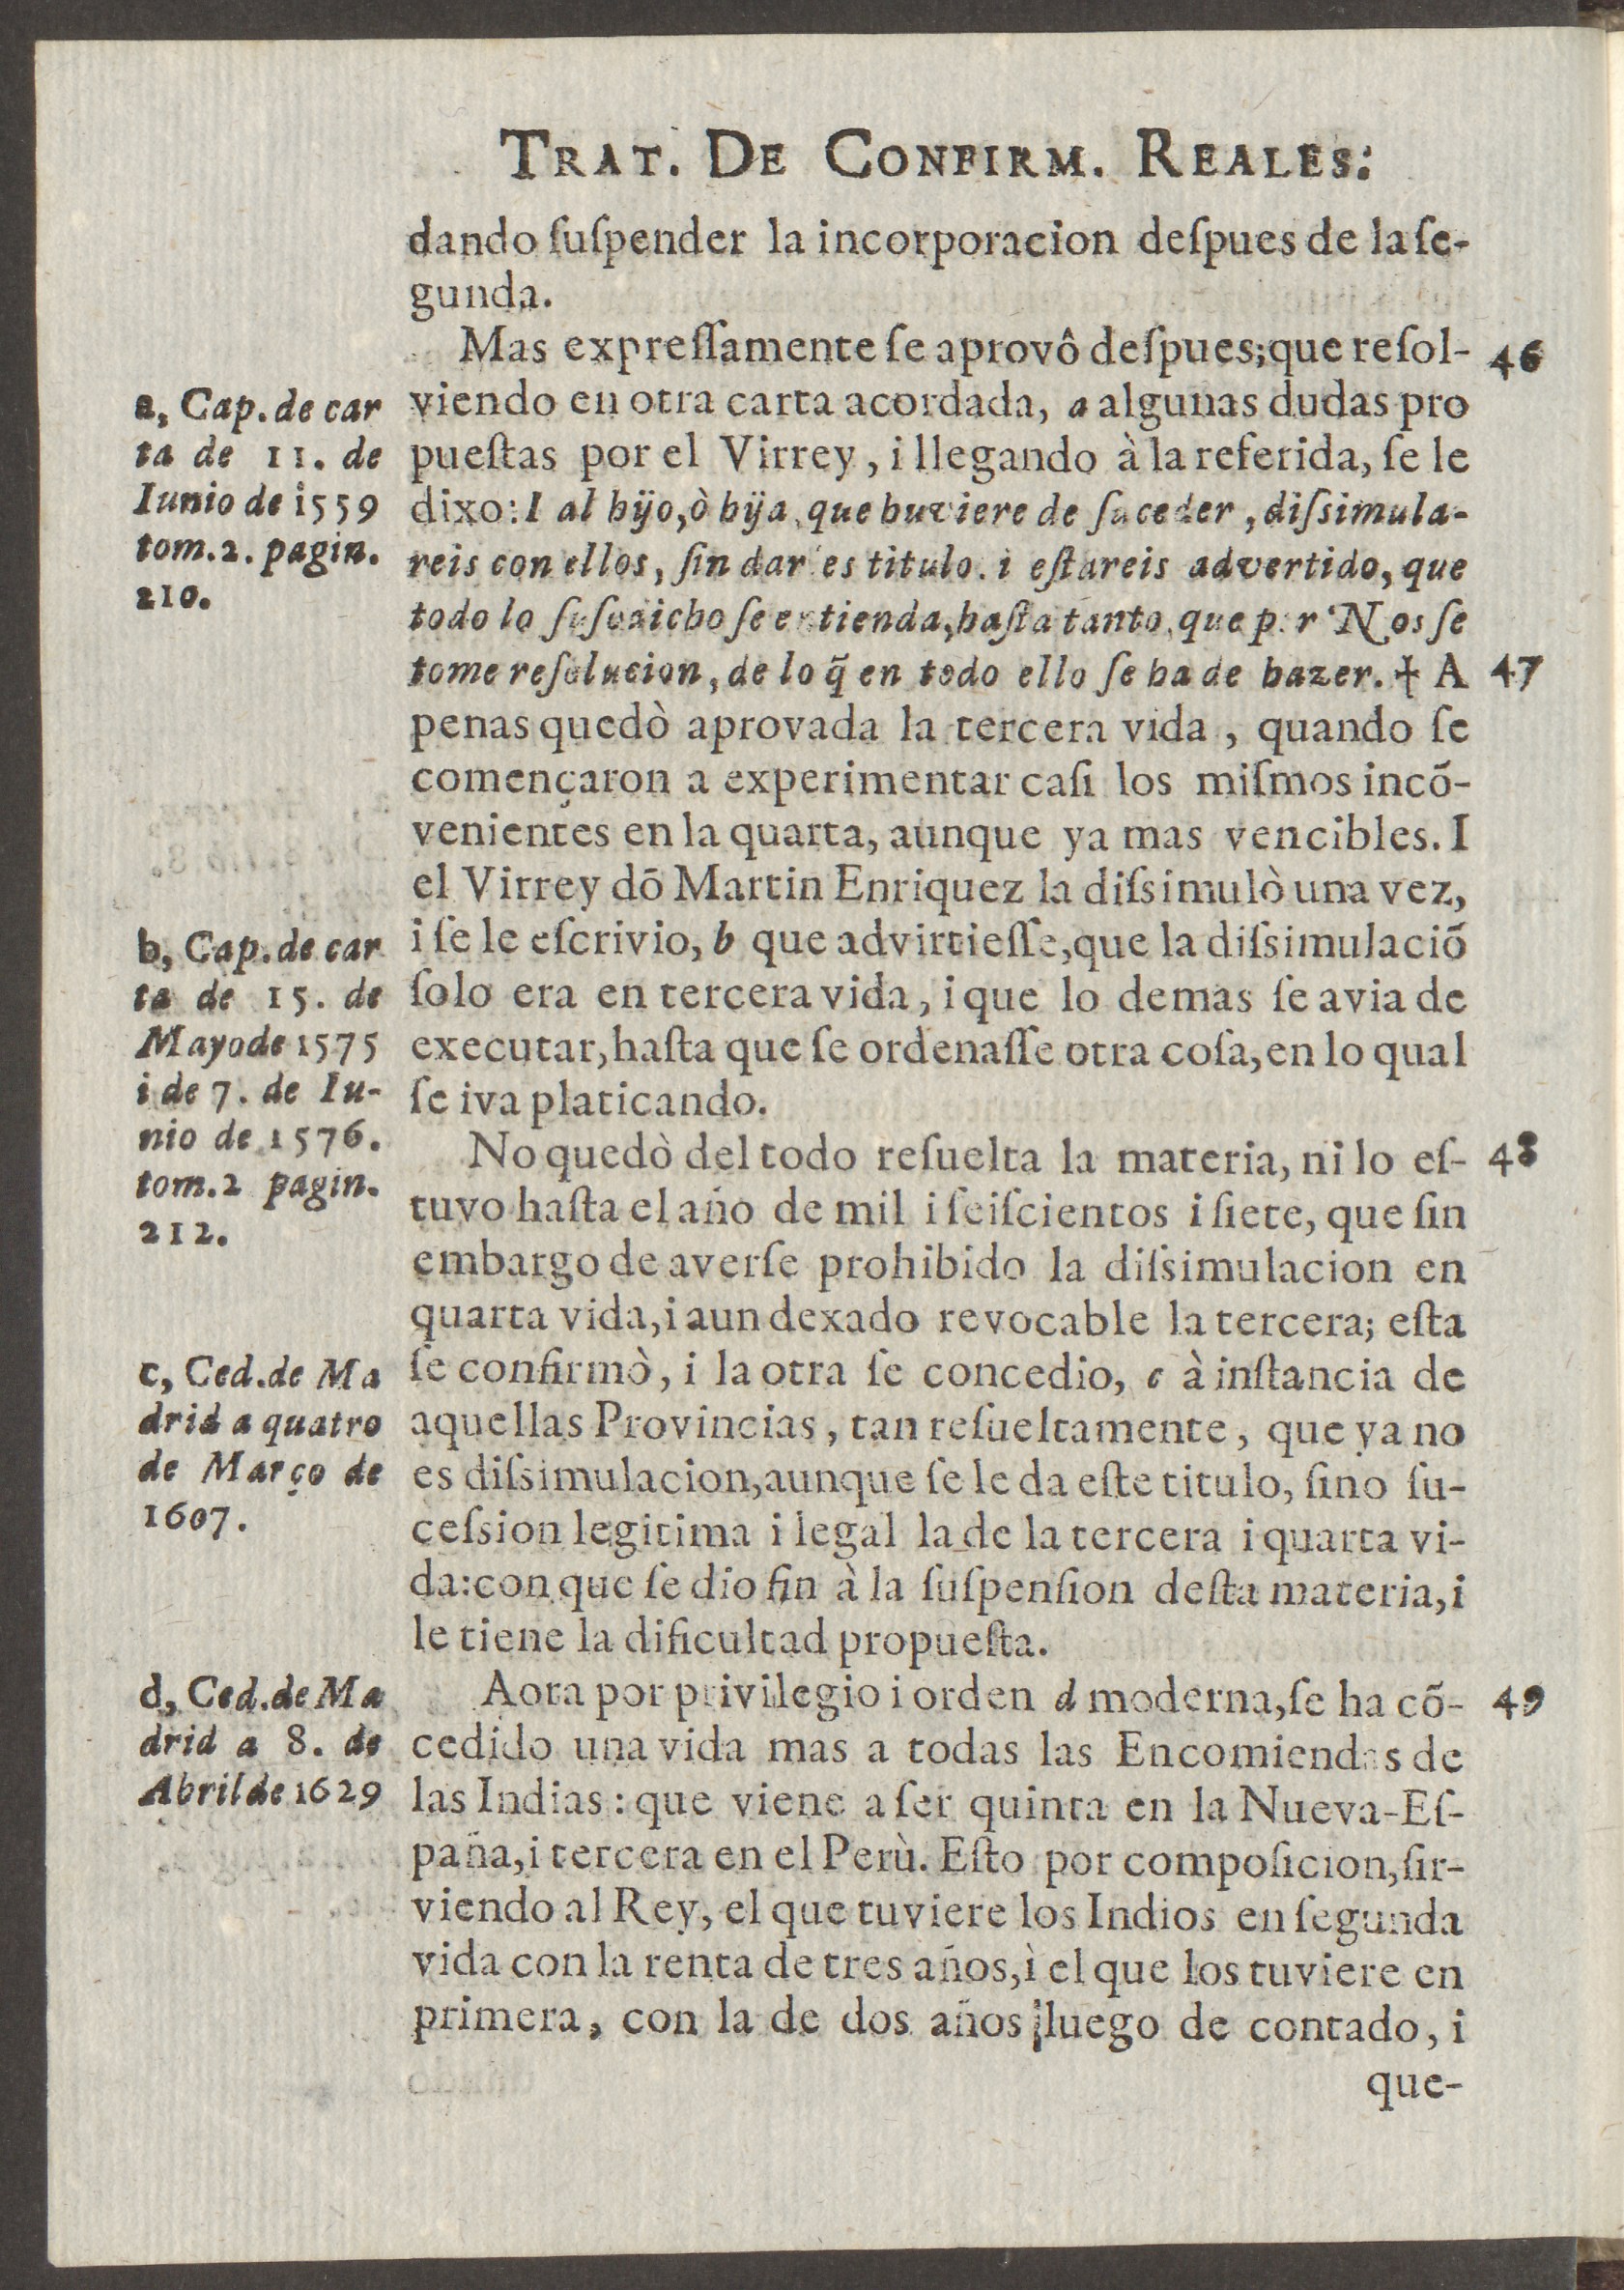 TRAT. DE CONFIRM. REALES:
dando ſuſpender la incorporacion deſpues de la ſe-
gunda.
Mas expreſſamente ſe aprovô deſpues; que reſol-
46
viendo en otra carta acordada, a algunas dudas pro
pueſtas por el Virrey, i llegando à la referida, ſe le
dixo: I al hijo, ò hija, que huviere de ſuceder, diſsimula-
reis con ellos, ſin darles titulo. i eſtareis advertido, que
todo lo ſuſodicho ſe entienda, haſta tanto, que por Nos ſe
tome reſolucion, de lo q̃ en todo ello ſe ha de hazer. ✝ A
47
penas quedò aprovada la tercera vida, quando ſe
començaron a experimentar caſi los miſmos incõ-
venientes en la quarta, aunque ya mas vencibles. I
el Virrey dō Martin Enriquez la diſsimulò una vez,
i ſe le eſcrivio, b que advirtieſſe, que la diſsimulaciō
ſolo era en tercera vida, i que lo demas ſe avia de
executar, haſta que ſe ordenaſſe otra coſa, en lo qual
ſe iva platicando.
No quedò del todo reſuelta la materia, ni lo eſ-
48
tuvo haſta el año de mil i ſeiſcientos i ſiete, que ſin
embargo de averſe prohibido la diſsimulacion en
quarta vida, i aun dexado revocable la tercera; eſta
ſe confirmò, i la otra ſe concedio, c à inſtancia de
aquellas Provincias, tan reſueltamente, que ya no
es diſsimulacion, aunque ſe le da eſte titulo, ſino ſu-
ceſsion legitima i legal la de la tercera i quarta vi-
da: con que ſe dio fin à la ſuſpenſion deſta materia, i
le tiene la dificultad propueſta.
Aora por privilegio i orden d moderna, ſe ha cõ-
49
cedido una vida mas a todas las Encomiendas de
las Indias: que viene a ſer quinta en la Nueva-Eſ-
paña, i tercera en el Perù. Eſto por compoſicion, ſir-
viendo al Rey, el que tuviere los Indios en ſegunda
vida con la renta de tres años, ì el que los tuviere en
primera, con la de dos años luego de contado, i
que-
a, Cap. de car
ta de 11. de
Iunio de 1559
tom. 2. pagin.
210.
b, Cap. de car
ta de 15. de
Mayo de 1575
i de 7. de Iu-
nio de 1576.
tom. 2 pagin.
212.
c, Ced. de Ma
drid a quatro
de Março de
1607.
d, Ced. de Ma
drid a 8. de
Abril de 1629